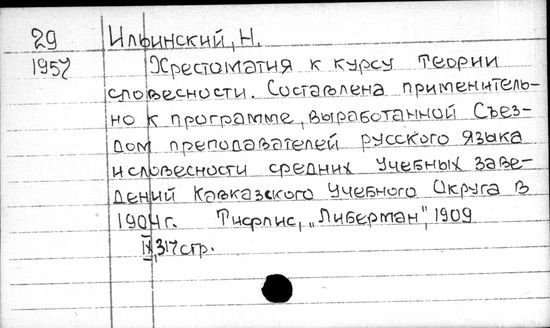 29 Ильинский, Н.
1957 Хрестоматия к курсу теории
словесности. Составлена применитель-
но к программе, выработанной Съез-
дом преподавателей русского языка
и словесности средних учебных заве-
дений Кавказского Учебного Округа в
1904г. Тифлис, „Либерман", 1909
IV, 317 стр.